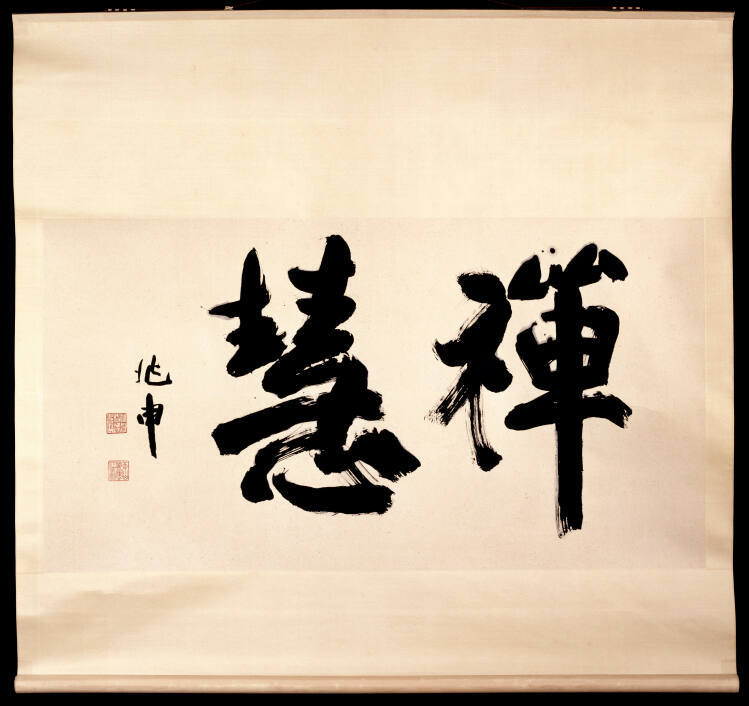 禪慧
兆申